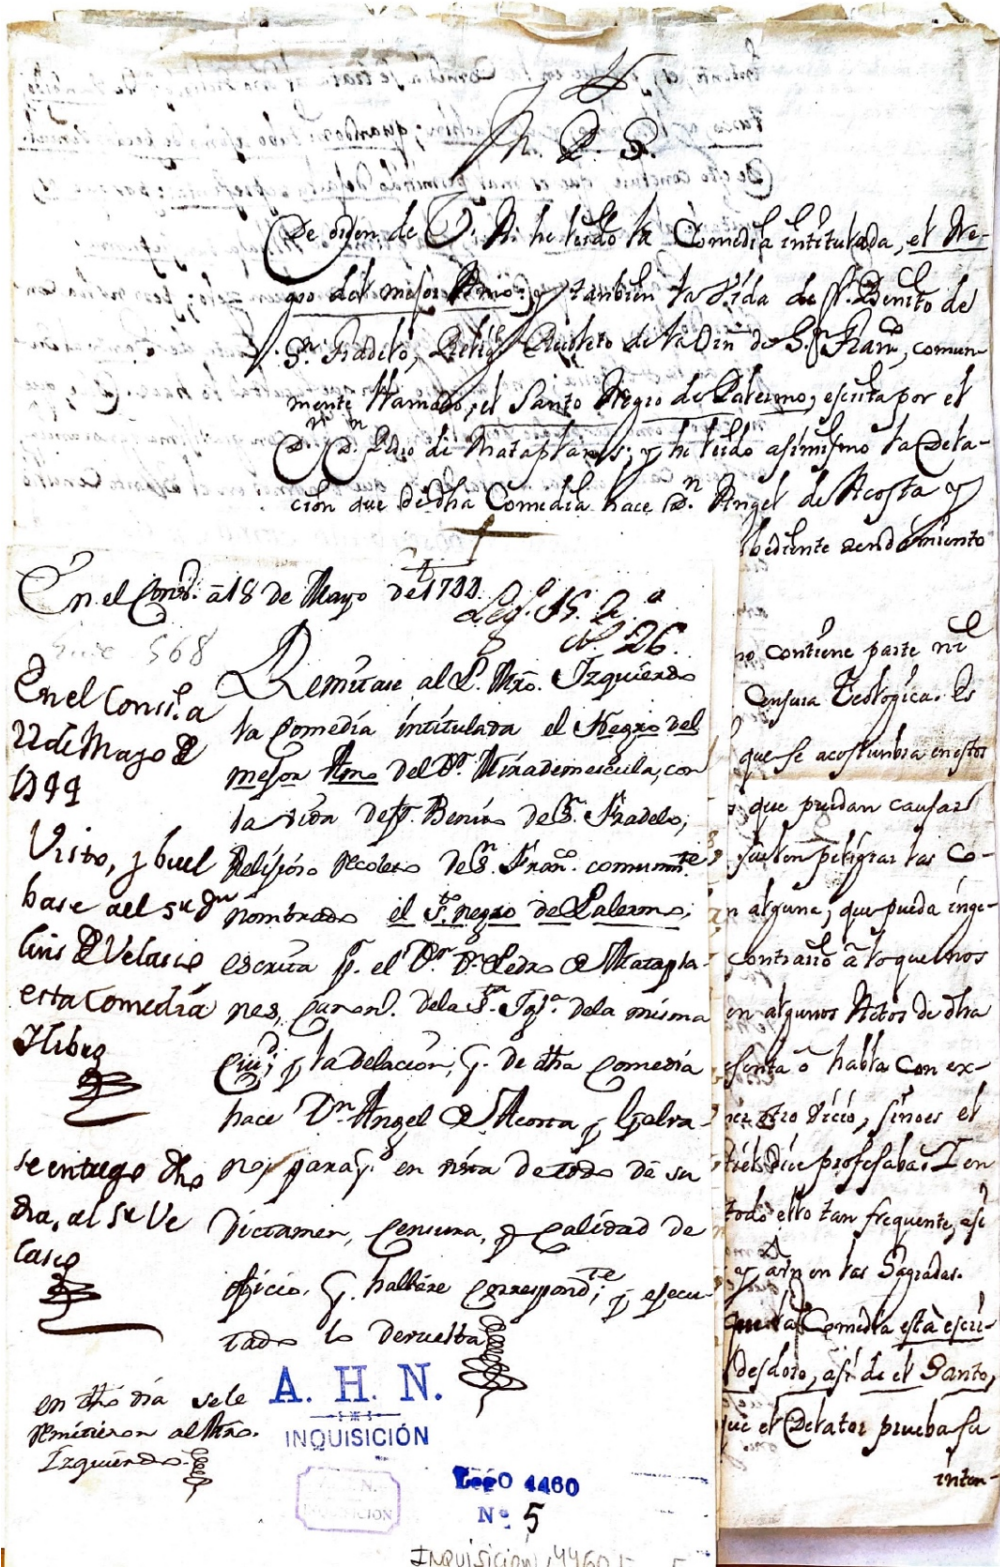 M. P. S.
De orden de V. A. he leido la Comedia intitulada, el Ne-
gro del mejor Amo; y tambien la Vida de Sn. Benito de
Sn. Fradelo, Relig.o Recoleto de la Orn de S.n Fran.co, comun
mente llamado, el Santo Negro de Palermo; escrita por el
D.n D.n Pedro de Mataplanes; y he leido asimismo la Dela-
cion que de dha Comedia hace D.n Angel de Acosta y
bediente rendimiento
no contiene parte ni
Censura Teologica. Es
que se acostumbra en estos
que puedan causar
suelen peligrar las Co-
n alguna, que pueda inge-
contrario à lo que
en algunos Actos de dha
esenta ò habla con ex-
otro vicio, sino es el
dice profesaba. I en
todo ello tan frequente, asi
y aun en las Sagradas.
que la Comedia està escri-
desdoro, asi de el Santo,
que el Delator prueba su
inten-
En el Cons.o à 18 de Mayo de 1744
Leg.o 15.
N.o 26.
568
Remitase al P. Mro. Izquierdo
la comedia intitulada el Negro del
mejor Amo del D.r Mirademescula, con
la vida de Sn. Benito de S.n Fradelo,
Relijioso Recoleto de S.n Fran.co comunm.te
nombrado el S.to negro de Palermo,
escrita p.r el D.r D.n Pedro de Matapla-
nes, de la S.ta Igl.a de la misma
Ciud.d; y la delacion, q. de dha comedia
hace D.n Angel de Acosta y Galva-
no, para q. en vista de todo dè su
Dictamen, Censura, y calidad de
oficio, q. hallare correspond.te; y ejecu-
tado lo devuelba
En el Cons.o a
22 de Mayo de
1744
Visto, y buel
base al S.r D.n
Luis de Velasco
esta Comedia
y libro
se entrego dho
dia, al S.r Ve
lasco
en dho dia se le
remitieron al Mro.
Izquierdo.
A. H. N.
INQUISICIÓN
LegO 4460
Nº 5
INQUISICION, 4460